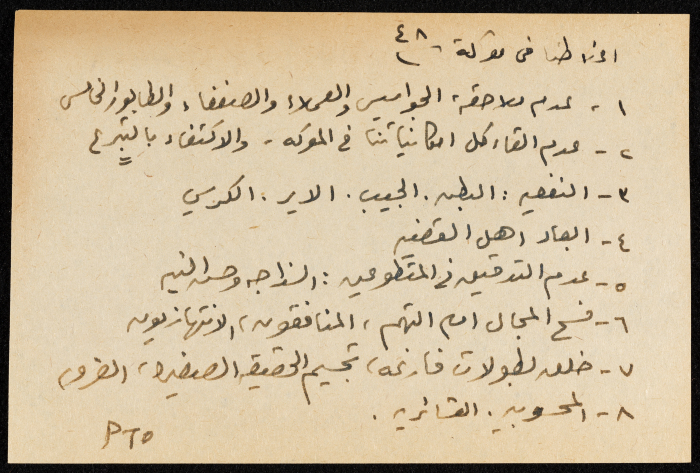 اخطاؤنا في معركة ٤٨
١ - عدم ملاحقة الجواسيس والعملاء والضعفاء والطابور الخامس
٢ - عدم القاء كل امكانياتنا في المعركة - والاكتفاء بالتبرع
٣ - النفعية : البطن . الجيب . الاير . الكرسي
٤ - ابعاد اهل القضية
٥ - عدم التدقيق في المتطوعين : السذاجة وحسن النية
٦ - فسح المجال امام التهم ، المنافقون ، الانتهازيون
٧ - خلق بطولات فارغة ، تجسيم الحقيقة الصغيرة ، الغرور
٨ - المحسوبية . العشائرية .
PTO